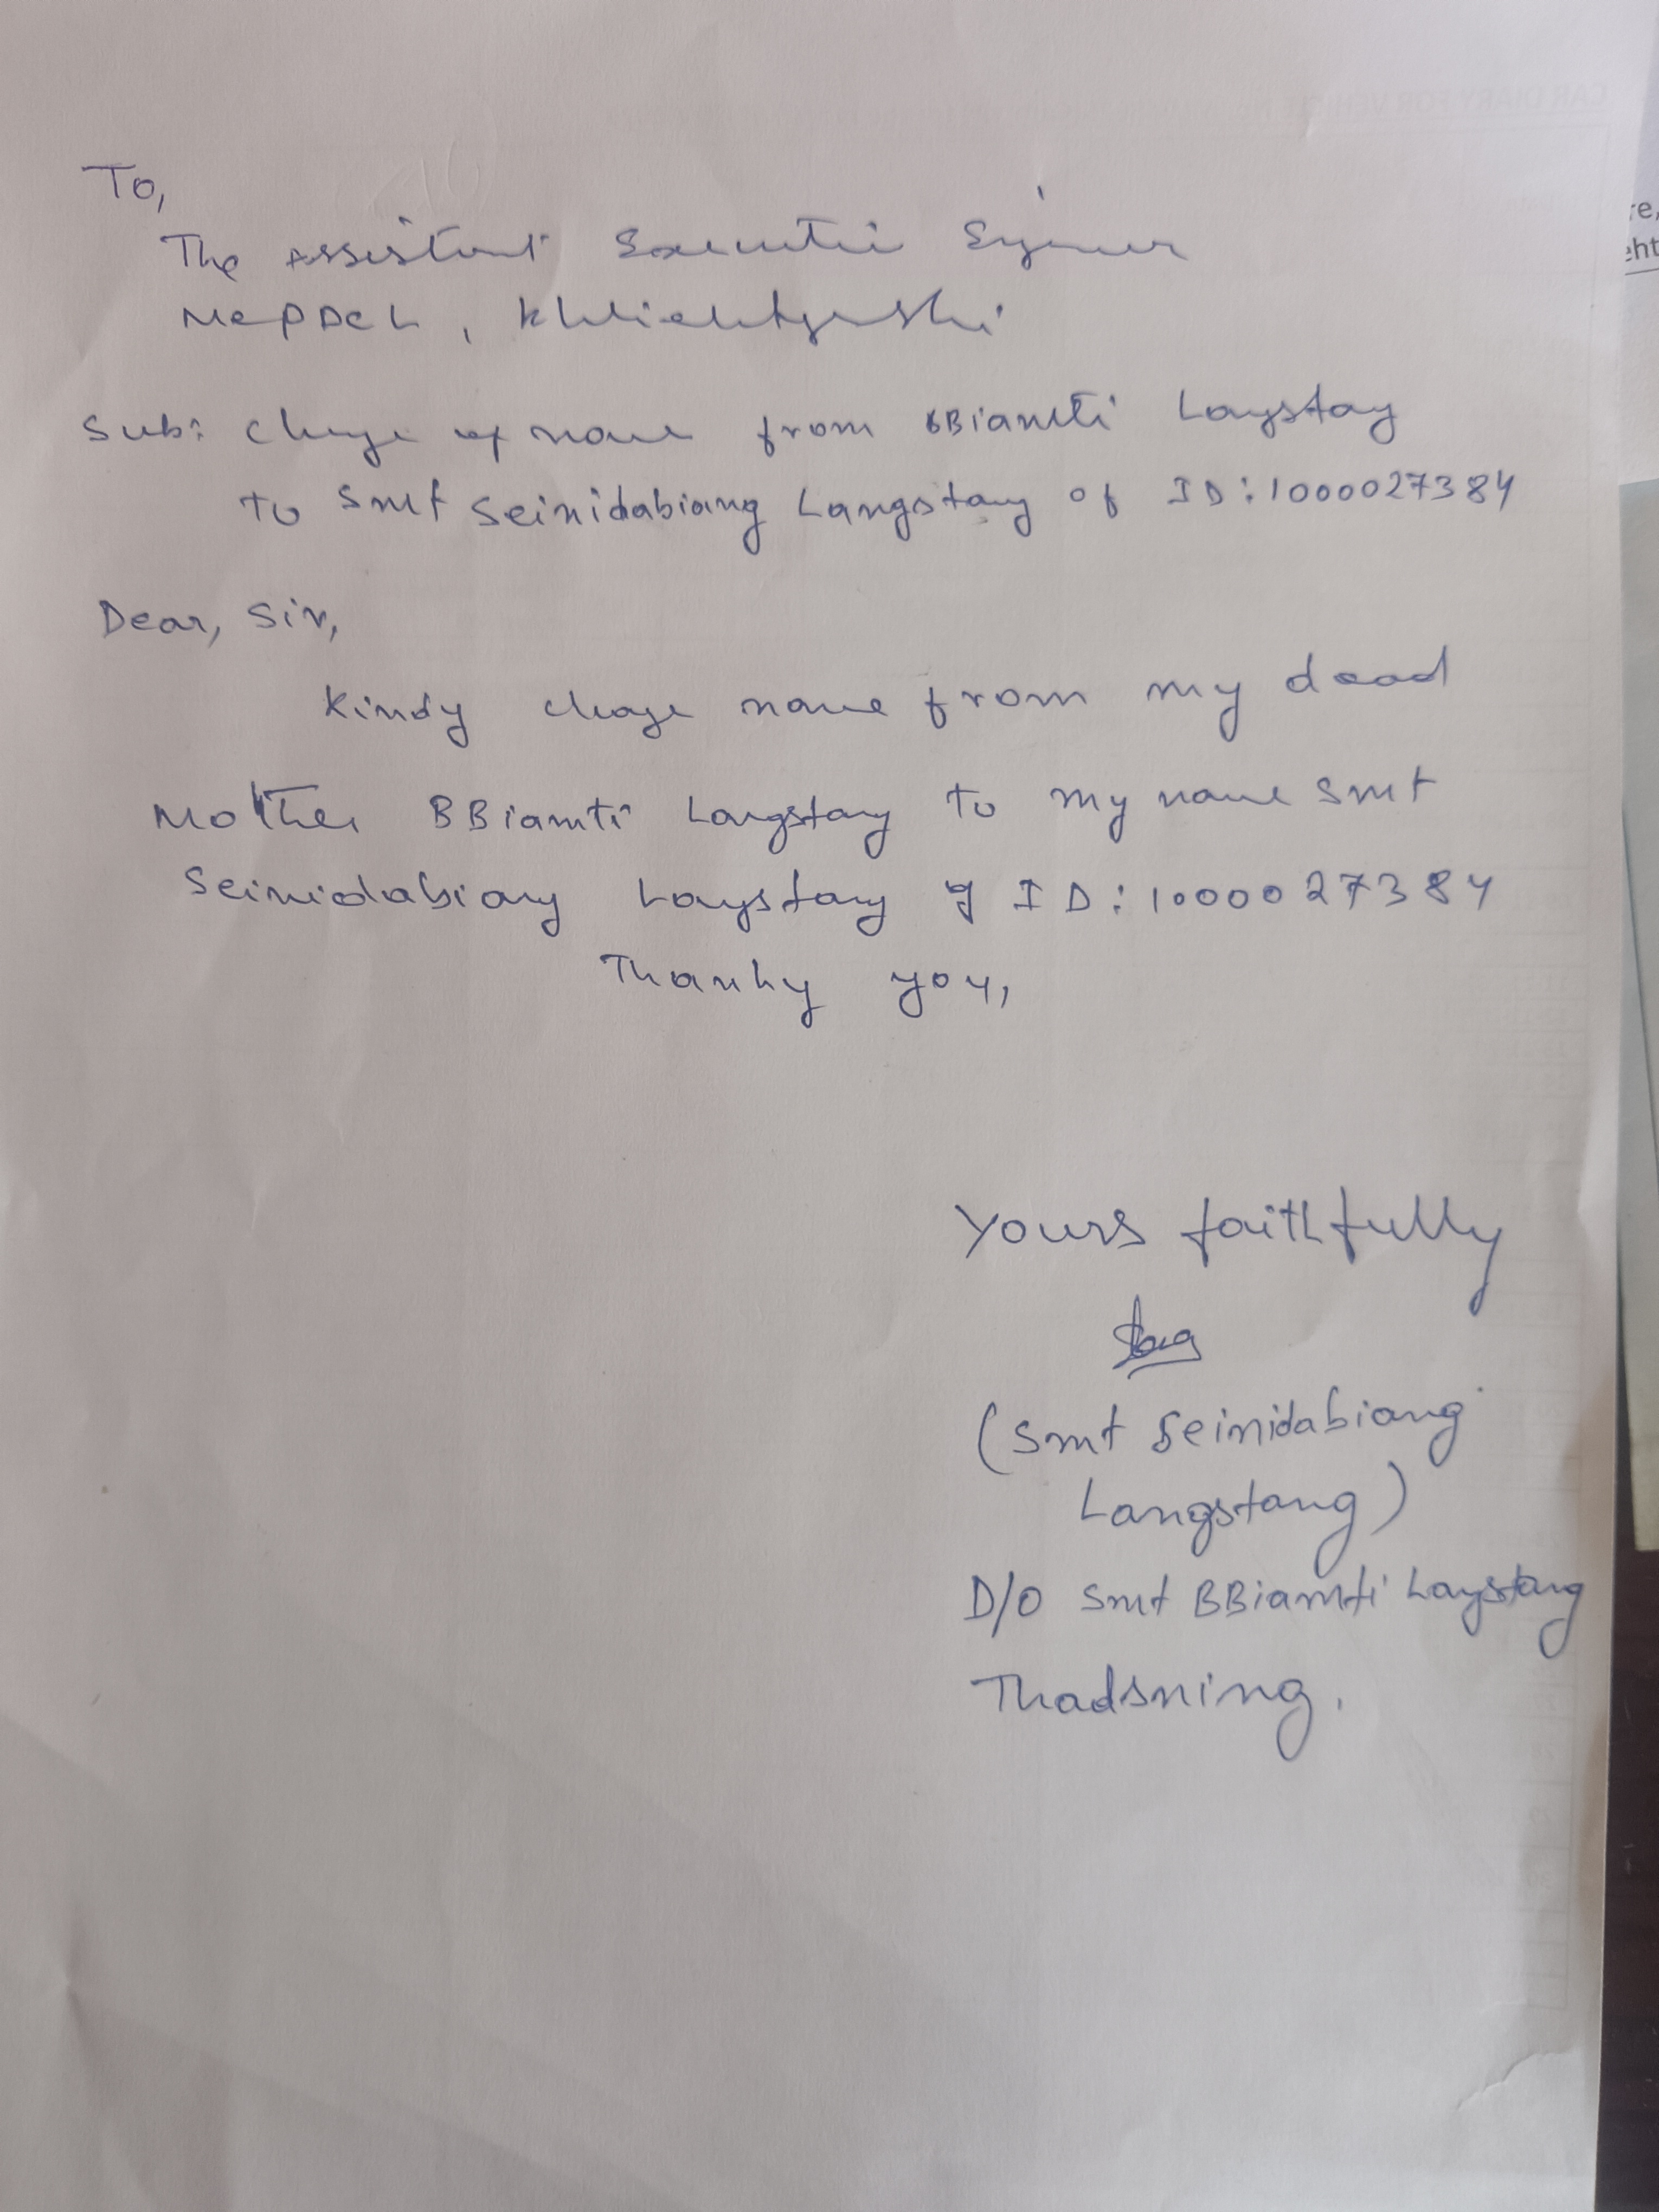 To,
The Assistant Executive Engineer
MePDCL, Khliehtyrshi
Sub: Change of name from BBiamti Langstang
To Smt Seinidabiang Langstang of ID: 1000027384
Dear, Sir,
Kindy change name from my dead
Mother BBiamti Langstang To my name Smt
Seinidabiang Langstang of ID: 1000027384
Thanky you,
Yours faithfully
(Smt Seinidabiang
Langstang)
D/O Smt BBiamti Langstang
Thadsning.